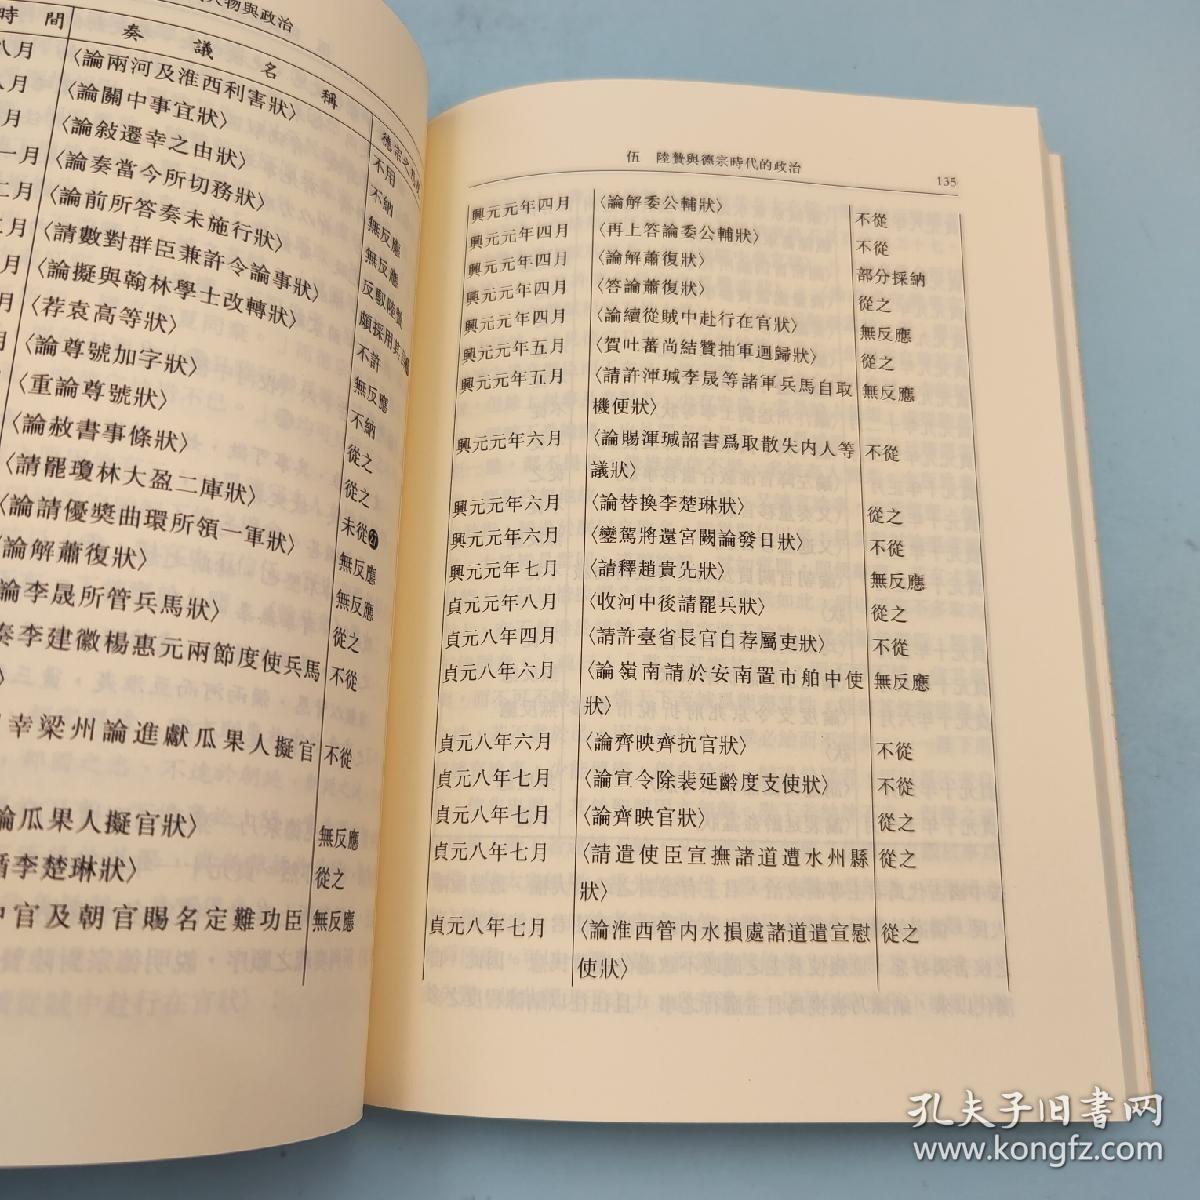 人物與政治
時間 奏議名稱
八月 〈論兩河及淮西利害狀〉 不用
八月 〈論關中事宜狀〉 不納
月 〈論敍遷幸之由狀〉 無反應
一月 〈論奏當今所切務狀〉 無反應
二月 〈論前所答奏未施行狀〉 反駁陸贄
二月 〈請數對群臣兼許令論事狀〉
月 〈論擬與翰林學士改轉狀〉 不許
月 〈荐袁高等狀〉 無反應
月 〈論尊號加字狀〉 不納
〈重論尊號狀〉 從之
〈論赦書事條狀〉 從之
〈請罷瓊林大盈二庫狀〉 未從
〈論請優獎曲環所領一軍狀〉 無反應
〈論解蕭復狀〉 無反應
論李晟所管兵馬狀〉 從之
奏李建徽楊惠元兩節度使兵馬 不從
〉
幸梁州論進獻瓜果人擬官 不從
論瓜果人擬官狀〉 無反應
李楚琳狀〉 從之
中官及朝官賜名定難功臣 無反應
伍 陸贄與德宗時代的政治 135
興元元年四月 〈論解委公輔狀〉 不從
興元元年四月 〈再上答論委公輔狀〉 不從
興元元年四月 〈論解蕭復狀〉 部分採納
興元元年四月 〈答論蕭復狀〉 從之
興元元年四月 〈論續從賊中赴行在官狀〉 無反應
興元元年五月 〈賀吐蕃尚結贊抽軍迴歸狀〉 從之
興元元年五月 〈請許渾瑊李晟等諸軍兵馬自取 無反應
機便狀〉
興元元年六月 〈論賜渾瑊詔書爲取散失内人等 不從
議狀〉
興元元年六月 〈論替換李楚琳狀〉 從之
興元元年六月 〈鑾駕將還宮闕論發日狀〉 不從
興元元年七月 〈請釋趙貴先狀〉 無反應
貞元元年八月 〈收河中後請罷兵狀〉 從之
貞元八年四月 〈請許臺省長官自荐屬吏狀〉 不從
貞元八年六月 〈論嶺南請於安南置市舶中使 無反應
狀〉
貞元八年六月 〈論齊映齊抗官狀〉 不從
貞元八年七月 〈論宣令除裴延齡度支使狀〉 不從
貞元八年七月 〈論齊映官狀〉 從之
貞元八年七月 〈請遣使臣宣撫諸道遭水州縣 從之
狀〉
貞元八年七月 〈論淮西管内水損處諸道遣宣慰 從之
使狀〉
孔夫子旧书网
www.kongfz.com